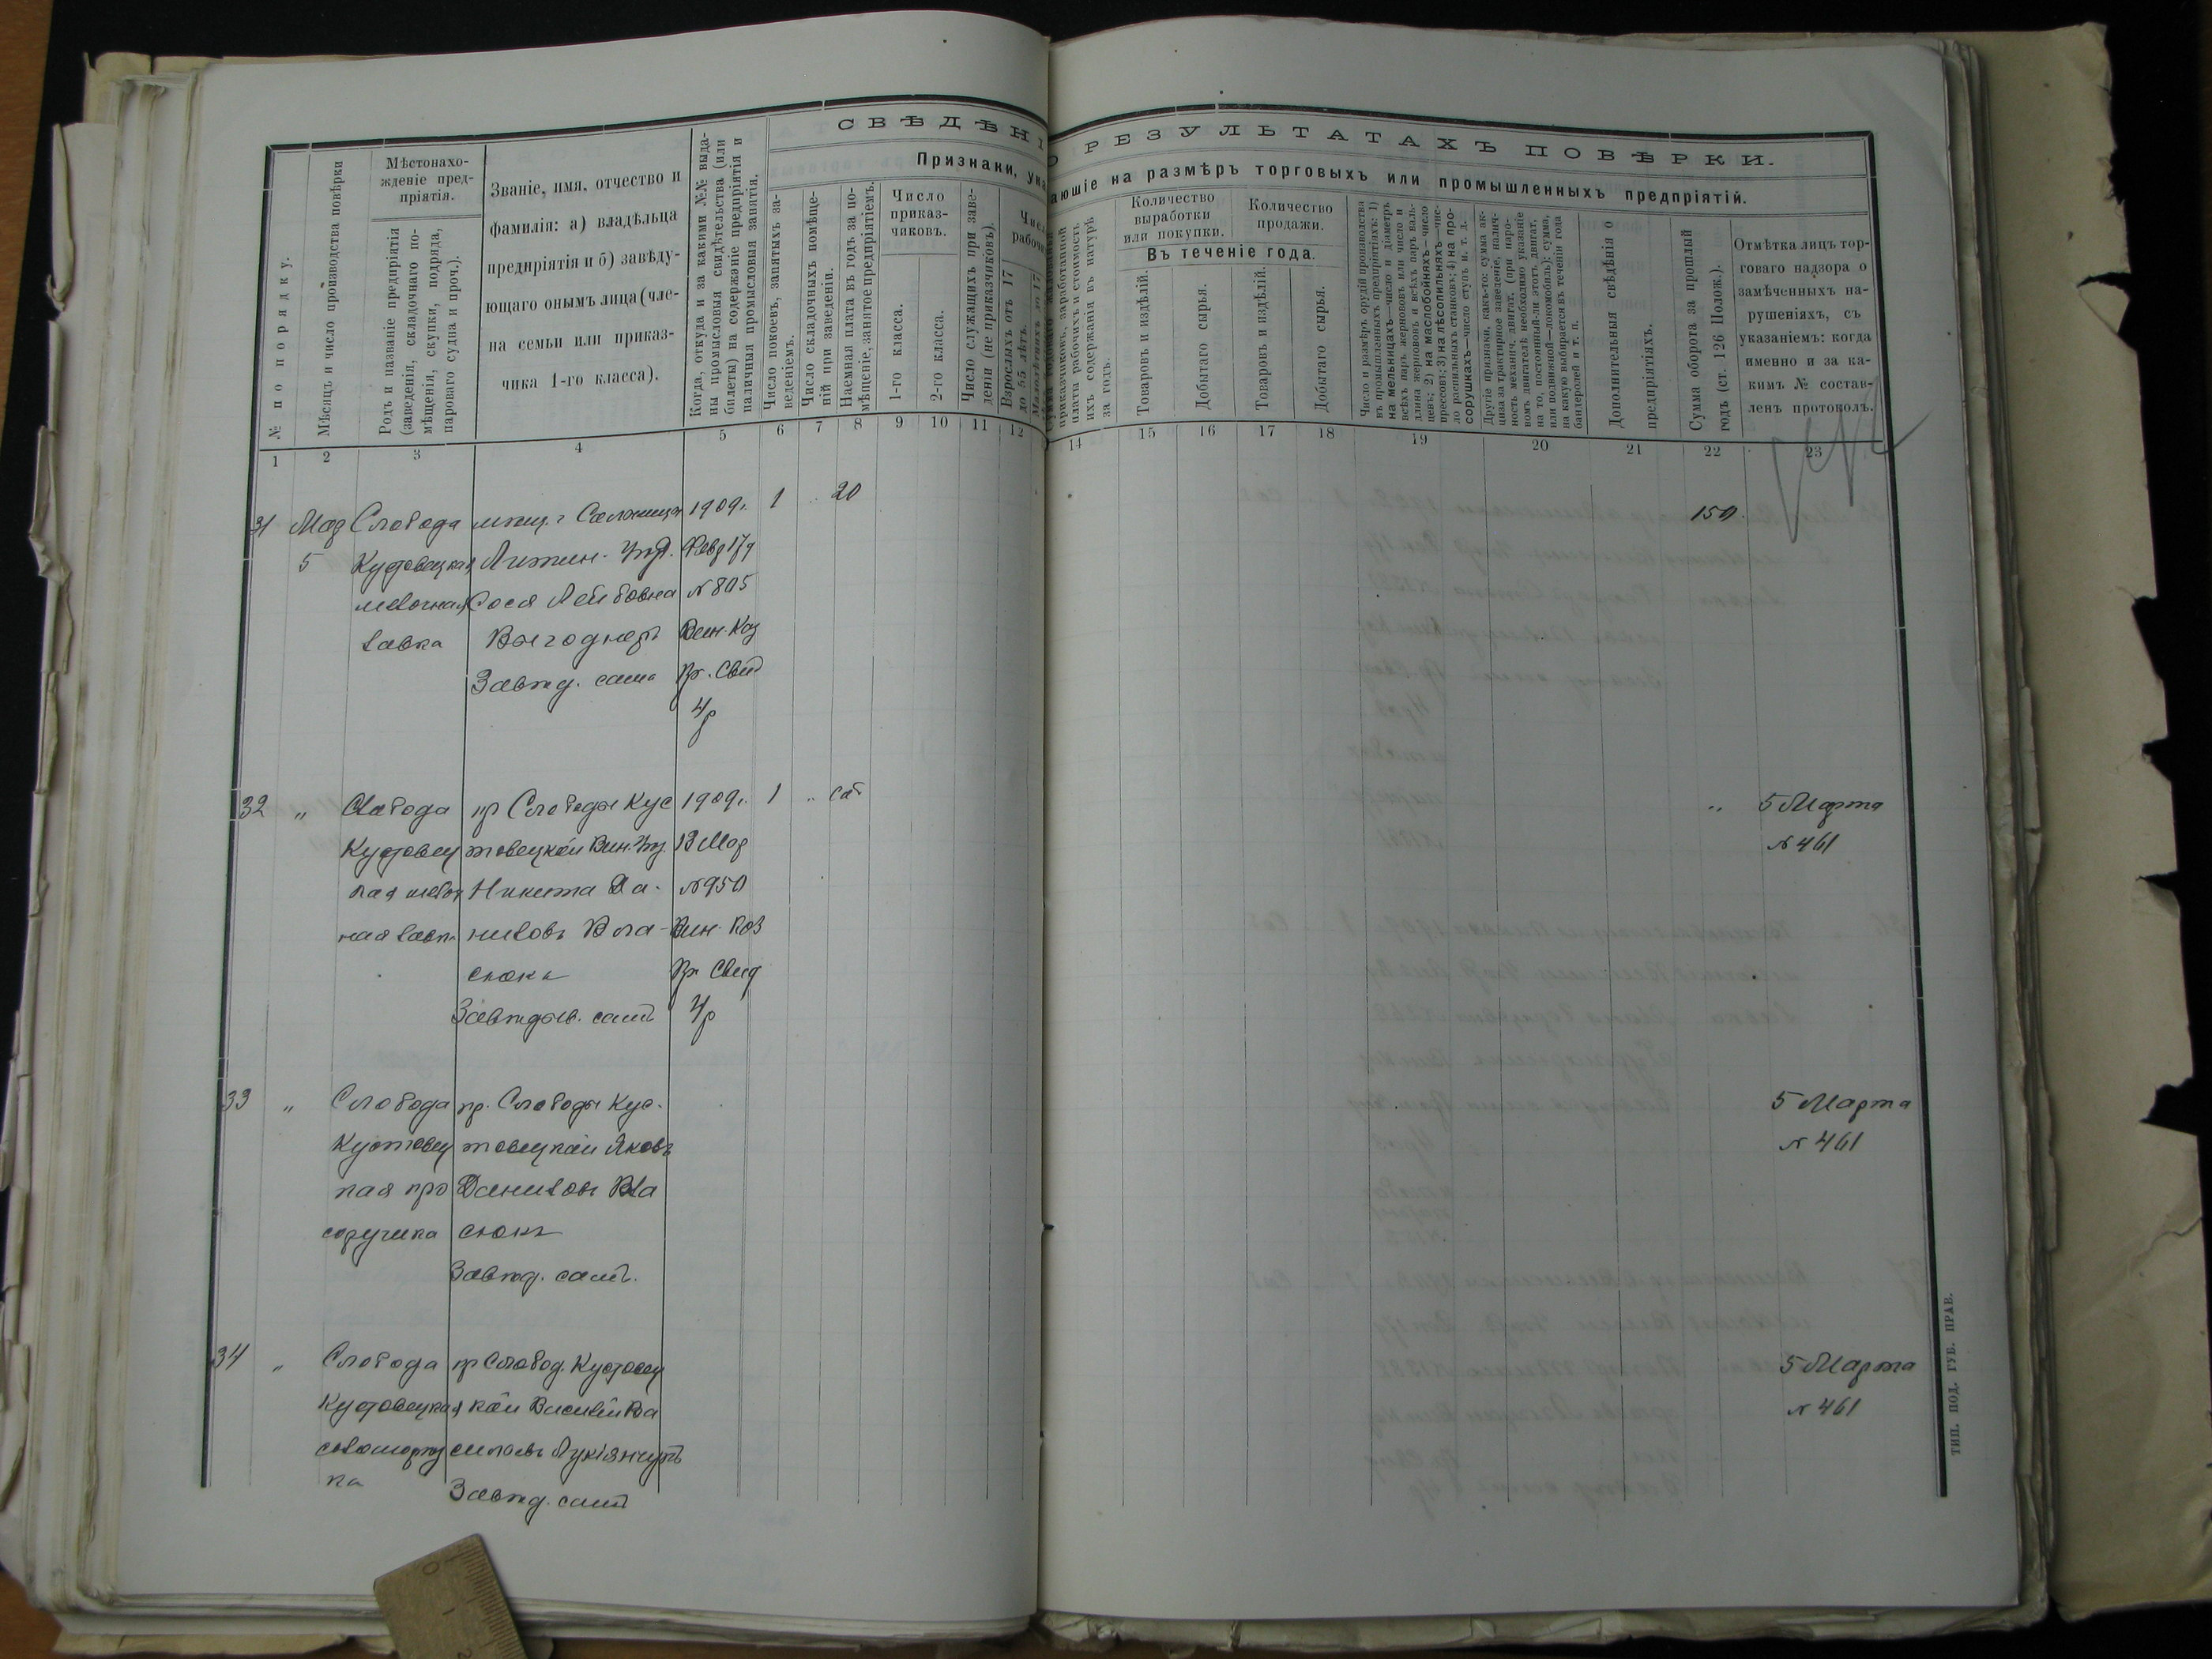 СВѢДѢНІ
О РЕЗУЛЬТАТАХЪ ПОВѢРКИ.
Признаки, ука
ающіе на размѣръ торговыхъ или промышленныхъ предпріятій.
№ по порядку.
Мѣсяцъ и число производства повѣрки
Мѣстонахо-
жденіе пред-
пріятія.
Родъ и названіе предпріятія
(заведенія, складочнаго по-
мѣщенія, скупки, подряда,
пароваго судна и проч.).
Званіе, имя, отчество и
фамилія: а) владѣльца
предпріятія и б) завѣду-
ющаго онымъ лица (чле-
на семьи или приказ-
чика 1-го класса).
Когда, откуда и за какими №№ выда-
ны промысловыя свидѣтельства (или
билеты) на содержаніе предпріятія и
наличныя промысловыя занятія.
Число покоевъ, занятыхъ за-
веденіемъ.
Число складочныхъ помѣще-
ній при заведеніи.
Наемная плата въ годъ за по-
мѣщеніе, занятое предпріятіемъ.
Число
приказ-
чиковъ.
1-го класса.
2-го класса.
Число служащихъ при заве-
деніи (не приказчиковъ).
Взрослыхъ отъ 17
до 55 лѣтъ.
приказчиковъ, заработанной
платы рабочихъ и стоимость
ихъ содержанія въ натурѣ
за годъ.
Количество
выработки
или покупки.
Количество
продажи.
Въ теченіе года.
Товаровъ и издѣлій.
Добытаго сырья.
Товаровъ и издѣлій.
Добытаго сырья.
Число и размѣръ орудій производства
въ промышленныхъ предпріятіяхъ: 1)
на мельницахъ—число и діаметръ
всѣхъ паръ жернововъ или число и
длина жернововъ и всѣхъ паръ валь-
цевъ; 2) на маслобойняхъ—число
прессовъ; 3) на лѣсопильняхъ—чис-
ло распильныхъ станковъ; 4) на про-
сорушкахъ—число ступъ и т. д.
Другіе признаки, какъ-то: сумма ак-
циза за трактирное заведеніе, налич-
ность механич. двигат. (при паро-
вомъ двигателѣ необходимо указаніе
на то, постоянный-ли этотъ двигат.
или подвижной—локомобиль); сумма,
на какую выбирается въ теченіи года
бандеролей и т. п.
Дополнительныя свѣдѣнія о
предпріятіяхъ.
Сумма оборота за прошлый
годъ (ст. 126 Полож.).
Отмѣтка лицъ тор-
говаго надзора о
замѣченныхъ на-
рушеніяхъ, съ
указаніемъ: когда
именно и за ка-
кимъ № состав-
ленъ протоколъ.
1 2 3 4 5 6 7 8 9 10 11 12 14 15 16 17 18 19 20 21 22 23
31 Мар Слобода мѣщ. г Сальница 1909г. 1 „ 20 150.
5 Кустовецкая Литин. Уѣзд. Февр 17д
мелочная Сося Лейбовна №805
лавка Выгоднеръ Вин. Каз
Завѣд. сама Пр. Свид
4р
32 „ Слобода кр Слободы Кус 1909г. 1 „ соб „ 5 Марта
Кустовец товецкой Вин. Уѣз. 12 Мар №461
кая мелоч Никита Да- №950
ная лавка ниловъ Вла- Вин. Каз
сюкъ Пр Свид
Завѣдыв. самъ 4р
33 „ Слобода кр. Слободы Кус- 5 Марта
Кустовец товецкой Яковъ №461
кая про Даниловъ Вла
сорушка сюкъ
Завѣд. самъ.
34 „ Слобода кр Слобод. Кустовец 5 Марта
Кустовецкая кой Василій Ва №461
силіевъ Лукіянчукъ
ка Завѣд. самъ
ТИП. ПОД. ГУБ. ПРАВ.